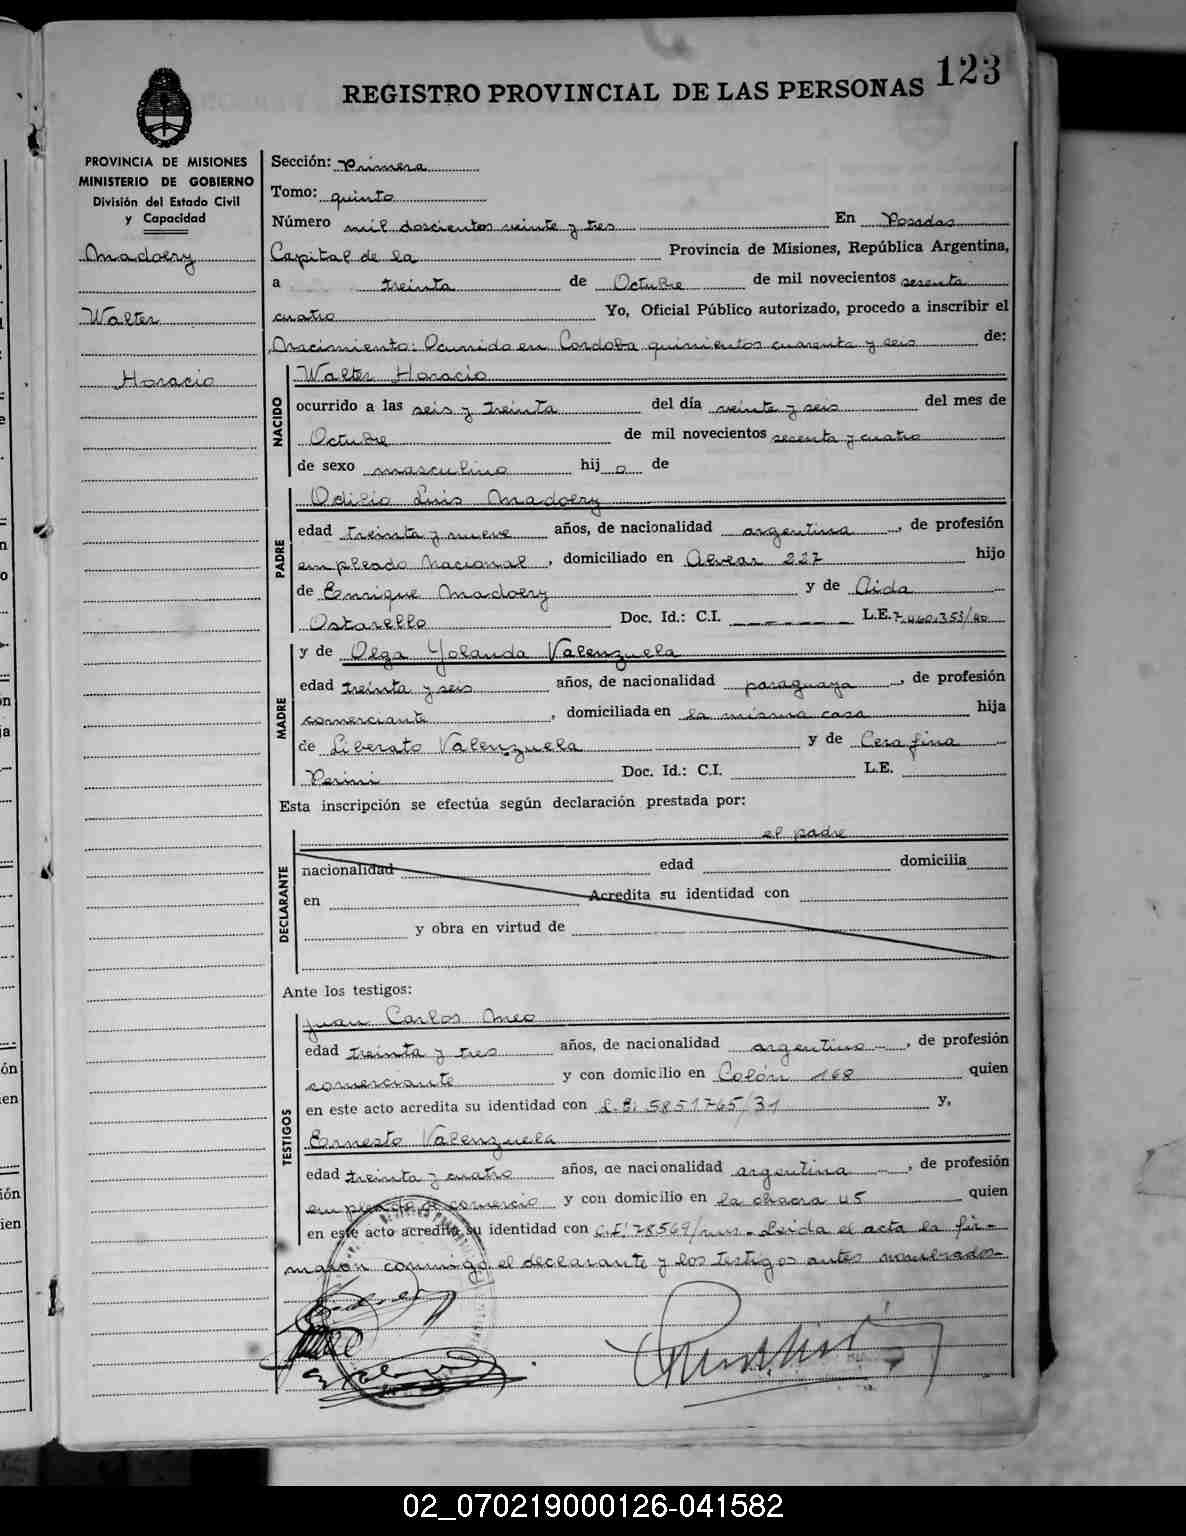 123
REGISTRO PROVINCIAL DE LAS PERSONAS
PROVINCIA DE MISIONES
MINISTERIO DE GOBIERNO
División del Estado Civil
y Capacidad
Madoery
Walter
Horacio
Sección: Primera
Tomo: quinto
Número mil doscientos veinte y tres En Posadas
Capital de la Provincia de Misiones, República Argentina,
a treinta de Octubre de mil novecientos sesenta
cuatro Yo, Oficial Público autorizado, procedo a inscribir el
Nacimiento: Ocurrido en Cordoba quinientos cuarenta y seis de:
NACIDO
Walter Horacio
ocurrido a las seis y treinta del día veinte y seis del mes de
Octubre de mil novecientos sesenta y cuatro
de sexo masculino hij o de
PADRE
Odilio Luis Madoery
edad treinta y nueve años, de nacionalidad argentina, de profesión
empleado Nacional, domiciliado en Alvear 227 hijo
de Enrique Madoery y de Aida
Ostarello Doc. Id.: C.I. L.E. 7.460.353/40
MADRE
y de Olga Yolanda Valenzuela
edad treinta y seis años, de nacionalidad paraguaya, de profesión
comerciante, domiciliada en la misma casa hija
de Liberato Valenzuela y de Cerafina
Perini Doc. Id.: C.I. L.E.
Esta inscripción se efectúa según declaración prestada por:
DECLARANTE
el padre
nacionalidad edad domicilia
en Acredita su identidad con
y obra en virtud de
Ante los testigos:
TESTIGOS
Juan Carlos Meo
edad treinta y tres años, de nacionalidad argentino, de profesión
comerciante y con domicilio en Colón 168 quien
en este acto acredita su identidad con L.E: 5851765/31 y,
Ernesto Valenzuela
edad treinta y cuatro años, de nacionalidad argentina, de profesión
empleado de comercio y con domicilio en la chacra 45 quien
en este acto acredita su identidad con C.I: 78569/mis.- Leida el acta la fir-
maron conmigo el declarante y los testigos antes nombrados-
02_070219000126-041582